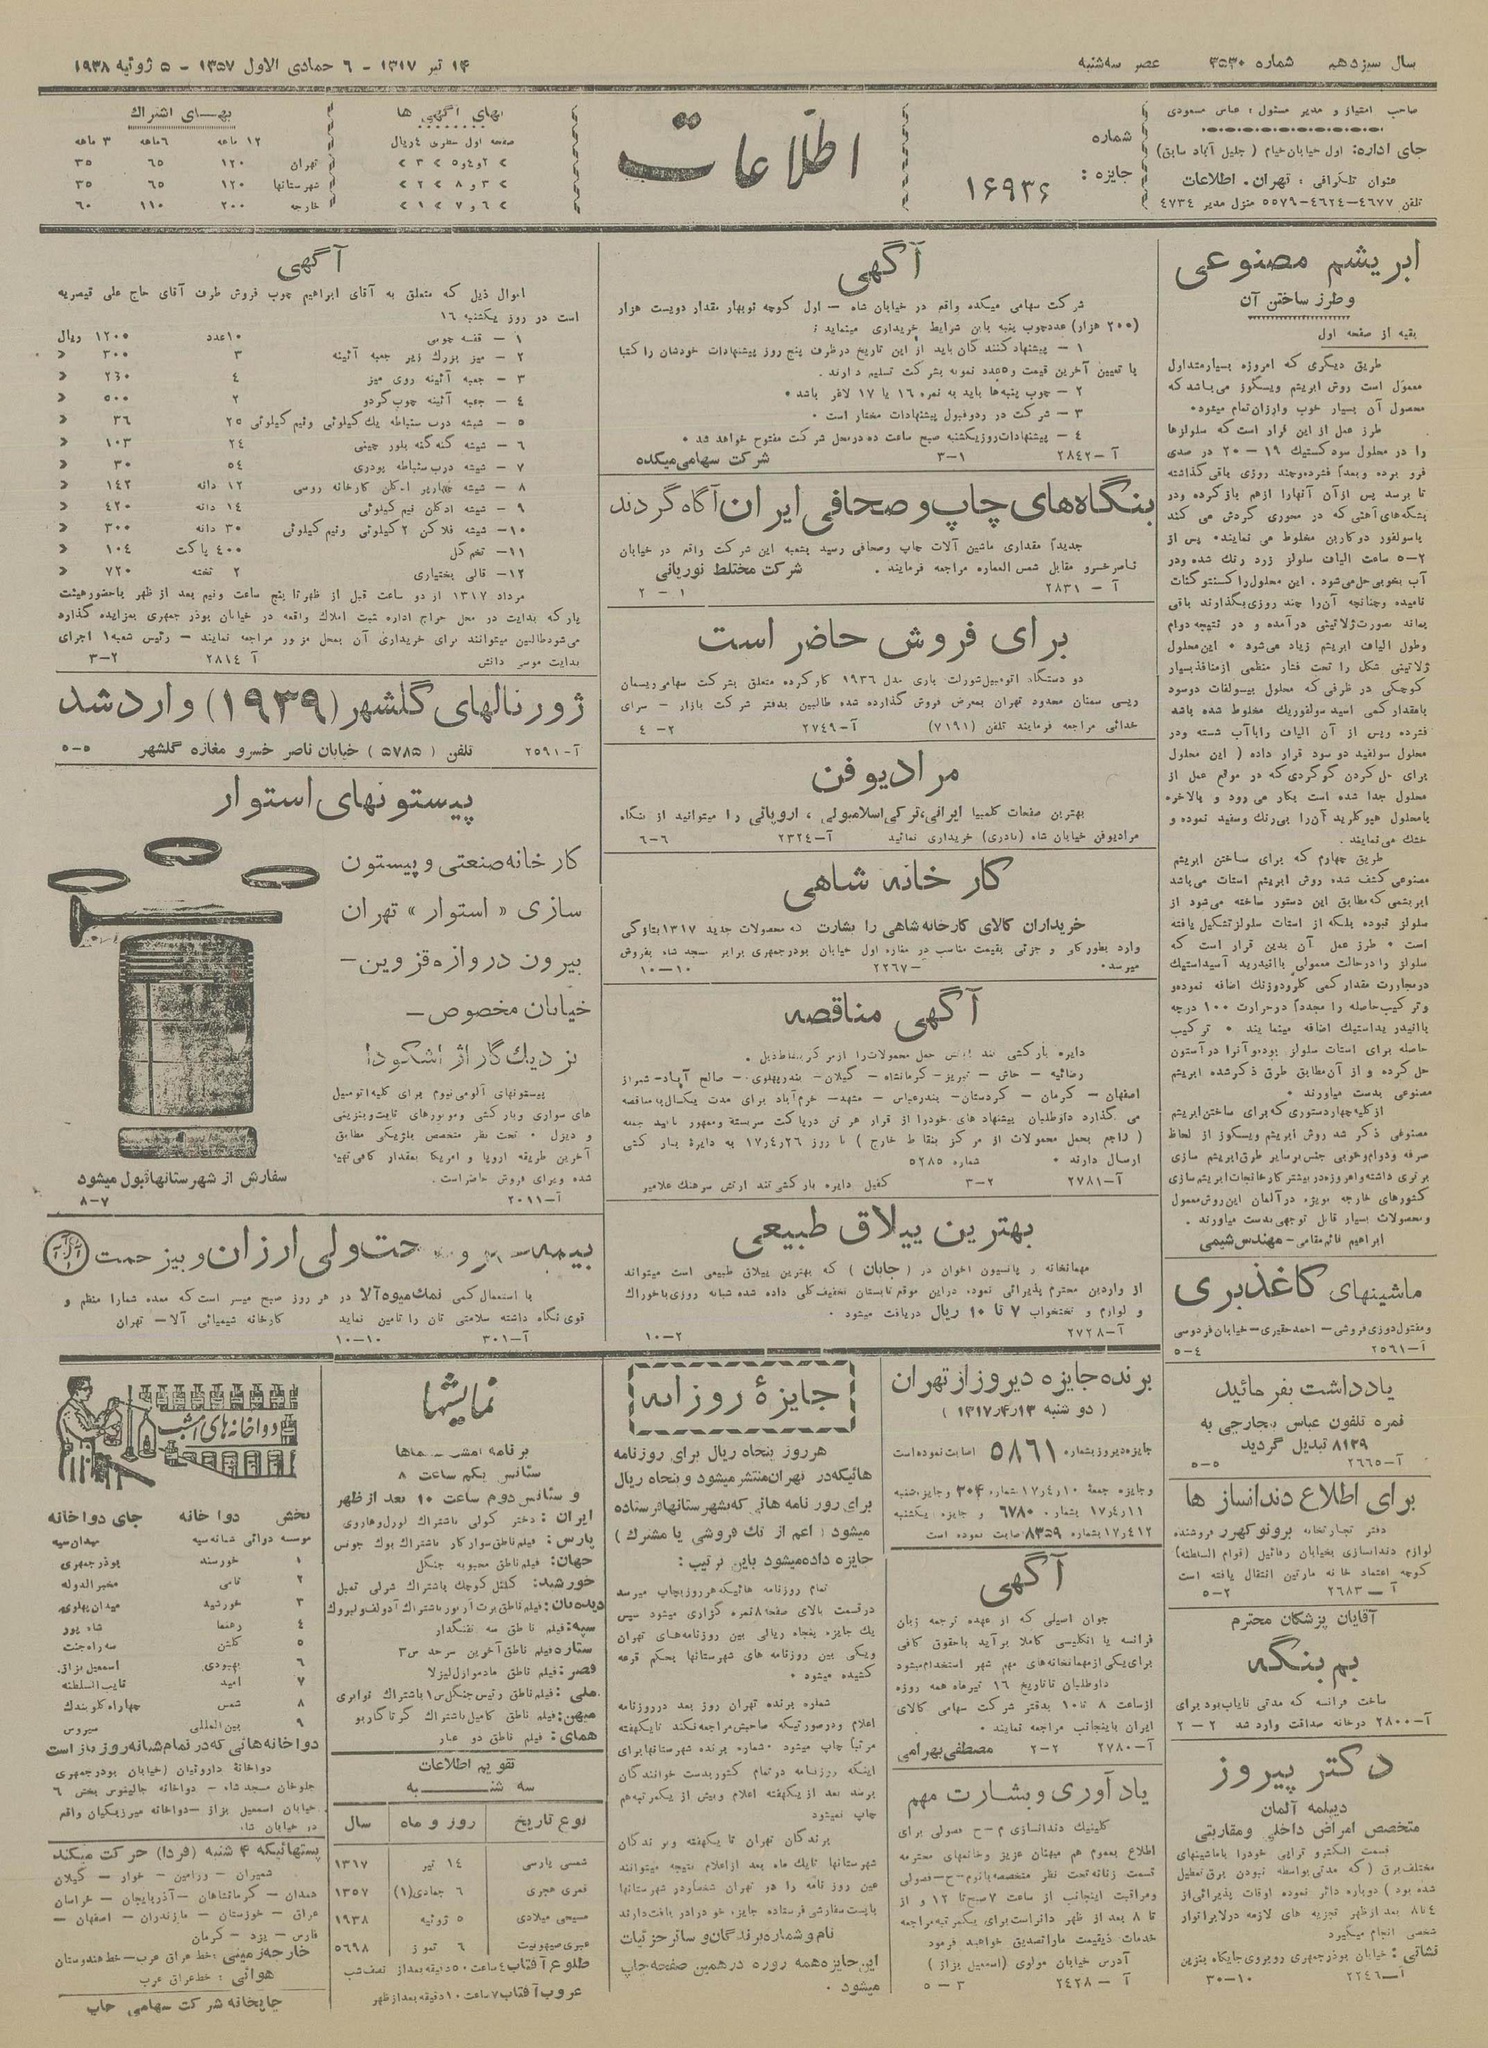 سال سیزدهم شماره ۳۵۳۰ عصر سه‌شنبه ۱۴ تیر ۱۳۱۷ - ۶ جمادی الاول ۱۳۵۷ - ۵ ژوئیه ۱۹۳۸
صاحب امتیاز و مدیر مسئول : عباس مسعودی
جای اداره: اول خیابان خیام ( جلیل آباد سابق)
عنوان تلگرافی : تهران . اطلاعات
تلفن ٤٦٧٧-٤٦٢٤-٥٥٧٩ منزل مدیر ٤٧٣٤
شماره
جایزه : ۱۶۹۳۶
اطلاعات
بهای آگهی ها
صفحه اول سطری ٤ ریال
« ۲ و ٤ و ٥ « ۳ «
« ۳ و ۸ « ۲ «
« ۶ و ۷ « ۱ «
بهــای اشتراك
۱۲ ماهه ٦ماهه ۳ ماهه
تهران ۱۲۰ ٦٥ ۳٥
شهرستانها ۱۲۰ ٦٥ ۳٥
خارجه ۲۰۰ ۱۱۰ ٦۰
ابریشم مصنوعی
وطرز ساختن آن
بقیه از صفحه اول
طریق دیگری که امروزه بسیارمتداول
معمول است روش ابریشم ویسکوز می‌باشد که
محصول آن بسیار خوب وارزان‌تمام میشود•
طرز عمل از این قرار است که سلولزها
را در محلول سودکستیك ۱۹ - ۲۰ در صدی
فرو برده و بعداً فشرده‌وچند روزی باقی گذاشته
تا برسد پس ازآن آنهارا ازهم بازکرده ودر
بشگه‌های آهنی که در محوری گردش می کند
باسولفور دوکاربن مخلوط می نمایند• پس از
۲-۵ ساعت الیاف سلولز زرد رنك شده ودر
آب بخوبی‌حل‌می‌شود . این محلول‌راکسنتوگنات
نامیده وچنانچه آن‌را چند روزی‌بگذارند باقی
بماند بصورت‌ژلاتینی درآمده و در نتیجه دوام
وطول الیاف ابریشم زیاد می‌شود • این‌محلول
ژلاتینی شکل را تحت فشار منظمی ازمنافذبسیار
کوچکی در ظرفی که محلول بیسولفات دوسود
بامقدارکمی اسید سولفوریك مخلوط شده باشد
فشرده وپس از آن الیاف راباآب شسته ودر
محلول سولفید دو سود قرار داده ( این محلول
برای حل کردن گوگردی‌که در موقع عمل از
محلول جدا شده است بکار می‌رود و بالاخره
بامحلول هیوکلرید آن‌را بی‌رنك وسفید نموده و
خشك می‌نمایند .
طریق چهارم که برای ساختن ابریشم
مصنوعی کشف شده روش ابریشم استات می‌باشد
ابریشمی که مطابق این دستور ساخته می‌شود از
سلولز نبوده بلکه از استات سلولزتشکیل یافته
است • طرز عمل آن بدین قرار است که
سلولز را درحالت معمولی باانیدرید آسیداستیك
درمجاورت مقدارکمی کلرودوزنك اضافه نموده‌و
وترکیب‌حاصله را مجدداً درحرارت ۱۰۰ درجه
باانیدریداستیك اضافه مینمایند • ترکیب
حاصله برای استات سلولز بوده‌وآنرا درآستون
حل کرده و از آن‌مطابق طرق ذکرشده ابریشم
مصنوعی بدست میاورند •
ازکلیه‌چهاردستوری که‌برای ساختن‌ابریشم
مصنوعی ذکر شد روش ابریشم ویسکوز از لحاظ
صرفه ودوام‌وخوبی جنس‌برسایر طرق‌ابریشم سازی
برتری داشته‌وامروزه‌دربیشتر کارخانجات‌ابریشم‌سازی
کشورهای خارجه بویژه درآلمان این‌روش‌معمول
ومحصولات بسیار قابل توجهی‌بدست میاورند .
ابراهیم قائم‌مقامی- مهندس‌شیمی
ماشینهای کاغذبری
ومفتول‌دوزی‌فروشی- احمدحقیری-خیابان‌فردوسی
آ-۲۵۶۱ ٤-٥
یادداشت بفرمائید
نمره تلفون عباس بخارجی به
۸۱۲۹ تبدیل گردید
آ-۲۶۶۵ ۵-۵
برای اطلاع دندانساز ها
دفتر تجارتخانه برونوکهرر فروشنده
لوازم دندانسازی بخیابان رفائیل (قوام السلطنه)
کوچه اعتماد خانه مارتین انتقال یافته است
آ - ۲۶۸۳ ۲-۵
آقایان پزشکان محترم
بم بنگه
ساخت فرانسه که مدتی نایاب‌بود برای
آ-۲۸۰۰ درخانه صداقت وارد شد ۲ - ۲
دکتر پیروز
دیپلمه آلمان
متخصص امراض داخلی ومقاربتی
قسمت الکترو تراپی خودرا باماشینهای
مختلف‌برق ( که مدتی بواسطه نبودن برق‌تعطیل
شده بود ) دوباره دائر نموده اوقات پذیرائی‌از
٤تا۸ بعد ازظهر تجزیه های لازمه درلابراتوار
شخصی انجام میگیرد
نشانی : خیابان بوذرجمهری روبروی‌جایگاه بنزین
آ-۲۲٤٦ ۱۰-۳۰
آگهی
شرکت سهامی میکده واقع در خیابان شاه - اول کوچه نوبهار مقدار دویست هزار
(۲۰۰ هزار) عددچوب پنبه باین شرایط خریداری مینماید :
۱ - پیشنهادکنندگان باید از این تاریخ درظرف پنج روز پیشنهادات خودشان را کتبا
با تعیین آخرین قیمت و٥عدد نمونه بشرکت تسلیم دارند.
۲ - چوب پنبه‌ها باید به نمره ۱٦ یا ۱۷ لاغر باشد •
۳ - شرکت در ردوقبول پیشنهادات مختار است •
٤ - پیشنهادات‌روزیکشنبه صبح ساعت ده‌درمحل شرکت مفتوح خواهد شد •
آ-۲۸٤۲ ۱-۳ شرکت سهامی‌میکده
بنگاه‌های چاپ و صحافی ایران آگاه گردند
جدیداً مقداری ماشین آلات چاپ وصحافی رسید بشعبه این شرکت واقع در خیابان
ناصرخسرو مقابل شمس‌العماره مراجعه فرمایند . شرکت مختلط نوربانی
آ - ۲۸۳۱ ۱ - ۲
برای فروش حاضر است
دو دستگاه اتومبیل‌شورلت باری مدل ۱۹۳٦ کارکرده متعلق بشرکت سهامی‌ریسمان
ریسی سمنان محدود تهران بمعرض فروش گذارده شده طالبین بدفتر شرکت بازار - سرای
خدائی مراجعه فرمایند تلفن (۷۱۹۱) آ-۲۷٤۹ ۲-٤
مرادیوفن
بهترین صفحات کلمبیا ایرانی،ترکی‌اسلامبولی ، اروپائی را میتوانید از بنگاه
مرادیوفن خیابان شاه (نادری) خریداری نمائید آ-۲۳۲٤ ٦-٦
کارخانه شاهی
خریداران کالای کارخانه‌شاهی را بشارت که محصولات جدید ۱۳۱۷بتازگی
وارد بطورکلی و جزئی بقیمت مناسب در مغازه اول خیابان بوذرجمهری برابر مسجد شاه بفروش
میرسد• -۲۲٦۷ ۱۰-۱۰
آگهی مناقصه
رضائیه - خاش - تبریز- کرمانشاه - گیلان- بندرپهلوی- صالح آباد- شیراز
اصفهان - کرمان - کردستان- بندرعباس - مشهد- خرم‌آباد برای مدت یکسال‌بمناقصه
می گذارد داوطلبان پیشنهاد های خودرا از قرار هر تن دربا‌کت سربسته وممهور
( راجع بحمل محمولات از مرکز بنقاط خارج ) تا روز ۲٦ر٤ر۱۷ به دایره بار کشی
ارسال دارند • شماره ٥۲۸٥
آ-۲۷۸۱ ۲-۳ کفیل دایره بارکشی‌تند ارتش سرهنك علامیر
بهترین ییلاق طبیعی
مهمانخانه و پانسیون اخوان در ( جابان ) که بهترین ییلاق طبیعی است میتواند
از واردین محترم پذیرائی نموده دراین موقع تابستان تخفیف‌کلی داده شده شبانه روزی‌باخوراك
و لوازم و تختخواب ۷ تا ۱۰ ریال دریافت میشود •
آ-۲۷۲۸ ۲-۱۰
آگهی
اموال ذیل که متعلق به آقای ابراهیم چوب فروش طرف آقای حاج علی قیصریه
است در روز یکشنبه ۱٦
۱ - قفسه چوبی ۱۰عدد ۱۲۰۰ ریال
۲ - میز بزرك زیر جعبه آئینه ۳ ۳۰۰ «
۳ - جعبه آئینه روی میز ٤ ۲۳۰ «
٤ - جعبه آئینه چوب‌گردو ۲ ٥۰۰ «
٥ - شیشه درب سنباطه یك‌کیلوئی ونیم کیلوئی ۲٥ ۳٦ «
٦ - شیشه گنه‌گنه بلور چینی ۲٤ ۱۰۳ «
۷ - شیشه درب‌سنباطه پودری ٥٤ ۳۰ «
۸ - شیشه ادکلن کارخانه روسی ۱۲ دانه ۱٤۲ «
۹ - شیشه ادکلن نیم کیلوئی ۱٤ دانه ٤۲۰ «
۱۰- شیشه فلاکن ۲کیلوئی ونیم کیلوئی ۳۰ دانه ۳۰۰ «
۱۱- تخم گل ٤۰۰ پاکت ۱۰٤ «
۱۲- قالی بختیاری ۲ تخته ۷۲۰ «
مرداد ۱۳۱۷ از دو ساعت قبل از ظهرتا پنج ساعت ونیم بعد از ظهر باحضورهیئت
پارکه بدایت در محل حراج اداره ثبت املاك واقعه در خیابان بوذر جمهری بمزایده گذارده
می‌شودطالبین میتوانند برای خریداری آن بمحل مزبور مراجعه نمایند - رئیس شعبه۱ اجرای
بدایت موسی دانش آ ۲۸۱٤ ۲-۳
ژورنالهای گلشهر (۱۹۳۹) وارد شد
آ-۲٥۹۱ تلفن ( ٥۷۸٥ ) خیابان ناصر خسرو مغازه گلشهر ٥-٥
پیستونهای استوار
کارخانه‌صنعتی و پیستون
سازی « استوار » تهران
بیرون دروازه قزوین-
خیابان مخصوص-
نزدیك گاراژ اشکودا
پیستونهای آلومی‌نیوم برای کلیه‌اتومبیل
های سواری وبارکشی وموتورهای ثابت‌وبنزینی
و دیزل • تحت نظر متخصص بلژیکی مطابق
آخرین طریقه اروپا و امریکا بمقدار کافی‌تهیه
شده وبرای فروش حاضراست .
آ-۲۰۱۱
سفارش از شهرستانهاقبول میشود
۷-۸
حت ولی ارزان و بیزحمت
با استعمال کمی نمك‌میوه‌آلا در هر روز صبح میسر است که معده شمارا منظم و
قوی نگاه داشته سلامتی تان را تامین نماید کارخانه شیمیائی آلا - تهران
آ-۳۰۱ ۱۰-۱۰
برنده جایزه دیروز از تهران
( دو شنبه ۱۳۱۷٫۴٫۱۳ )
جایزه‌دیروزبشماره ٥۸٦۱ اصابت نموده است
وجایزه جمعه ۱۰ر٤ر۱۷بشماره ۳۰۴ وجایزه‌شنبه
۱۱ر٤ر۱۷ بشماره ٦۷۸۰ و جایزه یکشنبه
۱۲ر٤ر۱۷بشماره ۸۳٥۹اصابت نموده است
آگهی
جوان اصیلی که از عهده ترجمه زبان
فرانسه یا انگلیسی کاملا برآید باحقوق کافی
برای‌یکی ازمهمانخانه‌های مهم شهر استخدام‌میشود
داوطلبان تاتاریخ ۱٦ تیرماه همه روزه
ازساعت ۸ تا۱۰ بدفتر شرکت سهامی کالای
ایران باینجانب مراجعه نمایند •
آ-۲۷۸۰ ۲-۲ مصطفی‌بهرامی
یادآوری و بشارت مهم
کلینیك دندانسازی م-ح فصولی برای
اطلاع بعموم هم میهنان عزیز وخانمهای محترمه
قسمت زنانه‌تحت نظر متخصصه‌بانوم-ح-فصولی
ومراقبت اینجانب از ساعت ۷صبح‌تا ۱۲ و از
تا ۸ بعد از ظهر دائراست‌برای یکمرتبه‌مراجعه
خدمات ذیقیمت ماراتصدیق خواهید فرمود
آدرس خیابان مولوی (اسمعیل بزاز )
آ - ۲٤۲۸ ۳ - ٥
جایزهٔ روزانه
هرروز پنجاه ریال برای روزنامه
هائیکه‌در تهران‌منتشرمیشود و پنجاه ریال
برای روزنامه هائی که‌بشهرستانهافرستاده
میشود ( اعم از تك فروشی یا مشترك )
جایزه داده‌میشود باین ترتیب :
تمام روزنامه هائیکه‌هرروزبچاپ میرسد
درقسمت بالای صفحه۸نمره گزاری میشود سپس
یك جایزه پنجاه ریالی بین روزنامه‌های تهران
ویکی بین روزنامه های شهرستانها بحکم قرعه
کشیده میشود •
شماره برنده تهران روز بعد درروزنامه
اعلام ودرصورتیکه صاحبش‌مراجعه‌نکند تایکهفته
مرتباً چاپ میشود •شماره برنده شهرستانهابرای
اینکه روزنامه درتمام کشوربدست خوانندگان
برسد بعد ازیکهفته اعلام وبیش از یکمرتبه‌هم
چاپ نمیشود
برندگان تهران تا یکهفته وبرندگان
شهرستانها تایك‌ماه بعد ازاعلام نتیجه میتوانند
عین روزنامه را در تهران شخصاودرشهرستانها
باپست‌سفارشی فرستاده جایزه خودرادریافت‌دارند
نام وشماره‌برندگان‌و سائرجزئیات
این‌جایزه‌همه روزه درهمین صفحه‌چاپ
میشود •
نمایشها
سئانس یکم ساعت ۸
و سئانس دوم ساعت ۱۰ بعد از ظهر
ایران : دختر کولی باشتراك لورل‌وهاردی
پارس: فیلم ناطق‌سوارکار باشتراك بوك جونس
جهان: فیلم‌ناطق محبوبه جنگل
خورشید: کلنل کوچك باشتراك شرلی تمپل
دیده‌بان: فیلم‌ناطق
سپه: فیلم ناطق سه تفنگدار
ستاره: فیلم ناطق آخرین سرحد س۳
قصر: فیلم ناطق مادموازل‌لیزلا
ملی: فیلم ناطق رئیس‌جنگل‌س۱باشتراك
میهن: فیلم ناطق کامیل باشتراك گرتاگاربو
همای: فیلم ناطق دو
تقویم اطلاعات
سه شنبـــه
نوع تاریخ روز و ماه سال
شمسی پارسی ۱٤ تیر ۱۳۱۷
قمری هجری ٦ جمادی(۱) ۱۳٥۷
مسیحی میلادی ٥ ژوئیه ۱۹۳۸
عبری صیهونیت ٦ تموز ٥٦۹۸
طلوع آفتاب ٤ساعت ٥۰دقیقه بعداز نصف‌شب
غروب‌آفتاب ۷ساعت ۱۰دقیقه بعدازظهر
دواخانه‌های امشب
بخش دواخانه جای دواخانه
موسسه دوائی شبانه سپه میدان‌سپه
۱ خورسند بوذرجمهری
۲ نامی مخبرالدوله
۳ خورشید میدان‌پهلوی
٤ رهنما شاه پور
٥ گلشن سه راه‌جنت
٦ بهبودی اسمعیل بزاز
۷ امید نایب‌السلطنه
۸ شمس چهارراه گلوبندك
۹ بین‌المللی سیروس
دواخانه‌هائی که‌در تمام شبانه‌روز باز است
دواخانهٔ داروئیان (خیابان بوذرجمهری
جلوخان مسجدشاه - دواخانه جالینوس بخش ٦
خیابان اسمعیل بزاز -دواخانه میرزیکیان واقع
در خیابان شاه
پستهائیکه ٤ شنبه (فردا) حرکت میکند
شمیران - ورامین - خوار - گیلان
همدان - کرمانشاهان -آذربایجان - خراسان
عراق - خوزستان - مازندران - اصفهان -
فارس - یزد - کرمان
خارجه‌زمینی :خط عراق عرب-خط هندوستان
هوائی : خط‌عراق عرب
چاپخانه شرکت سهامی چاپ